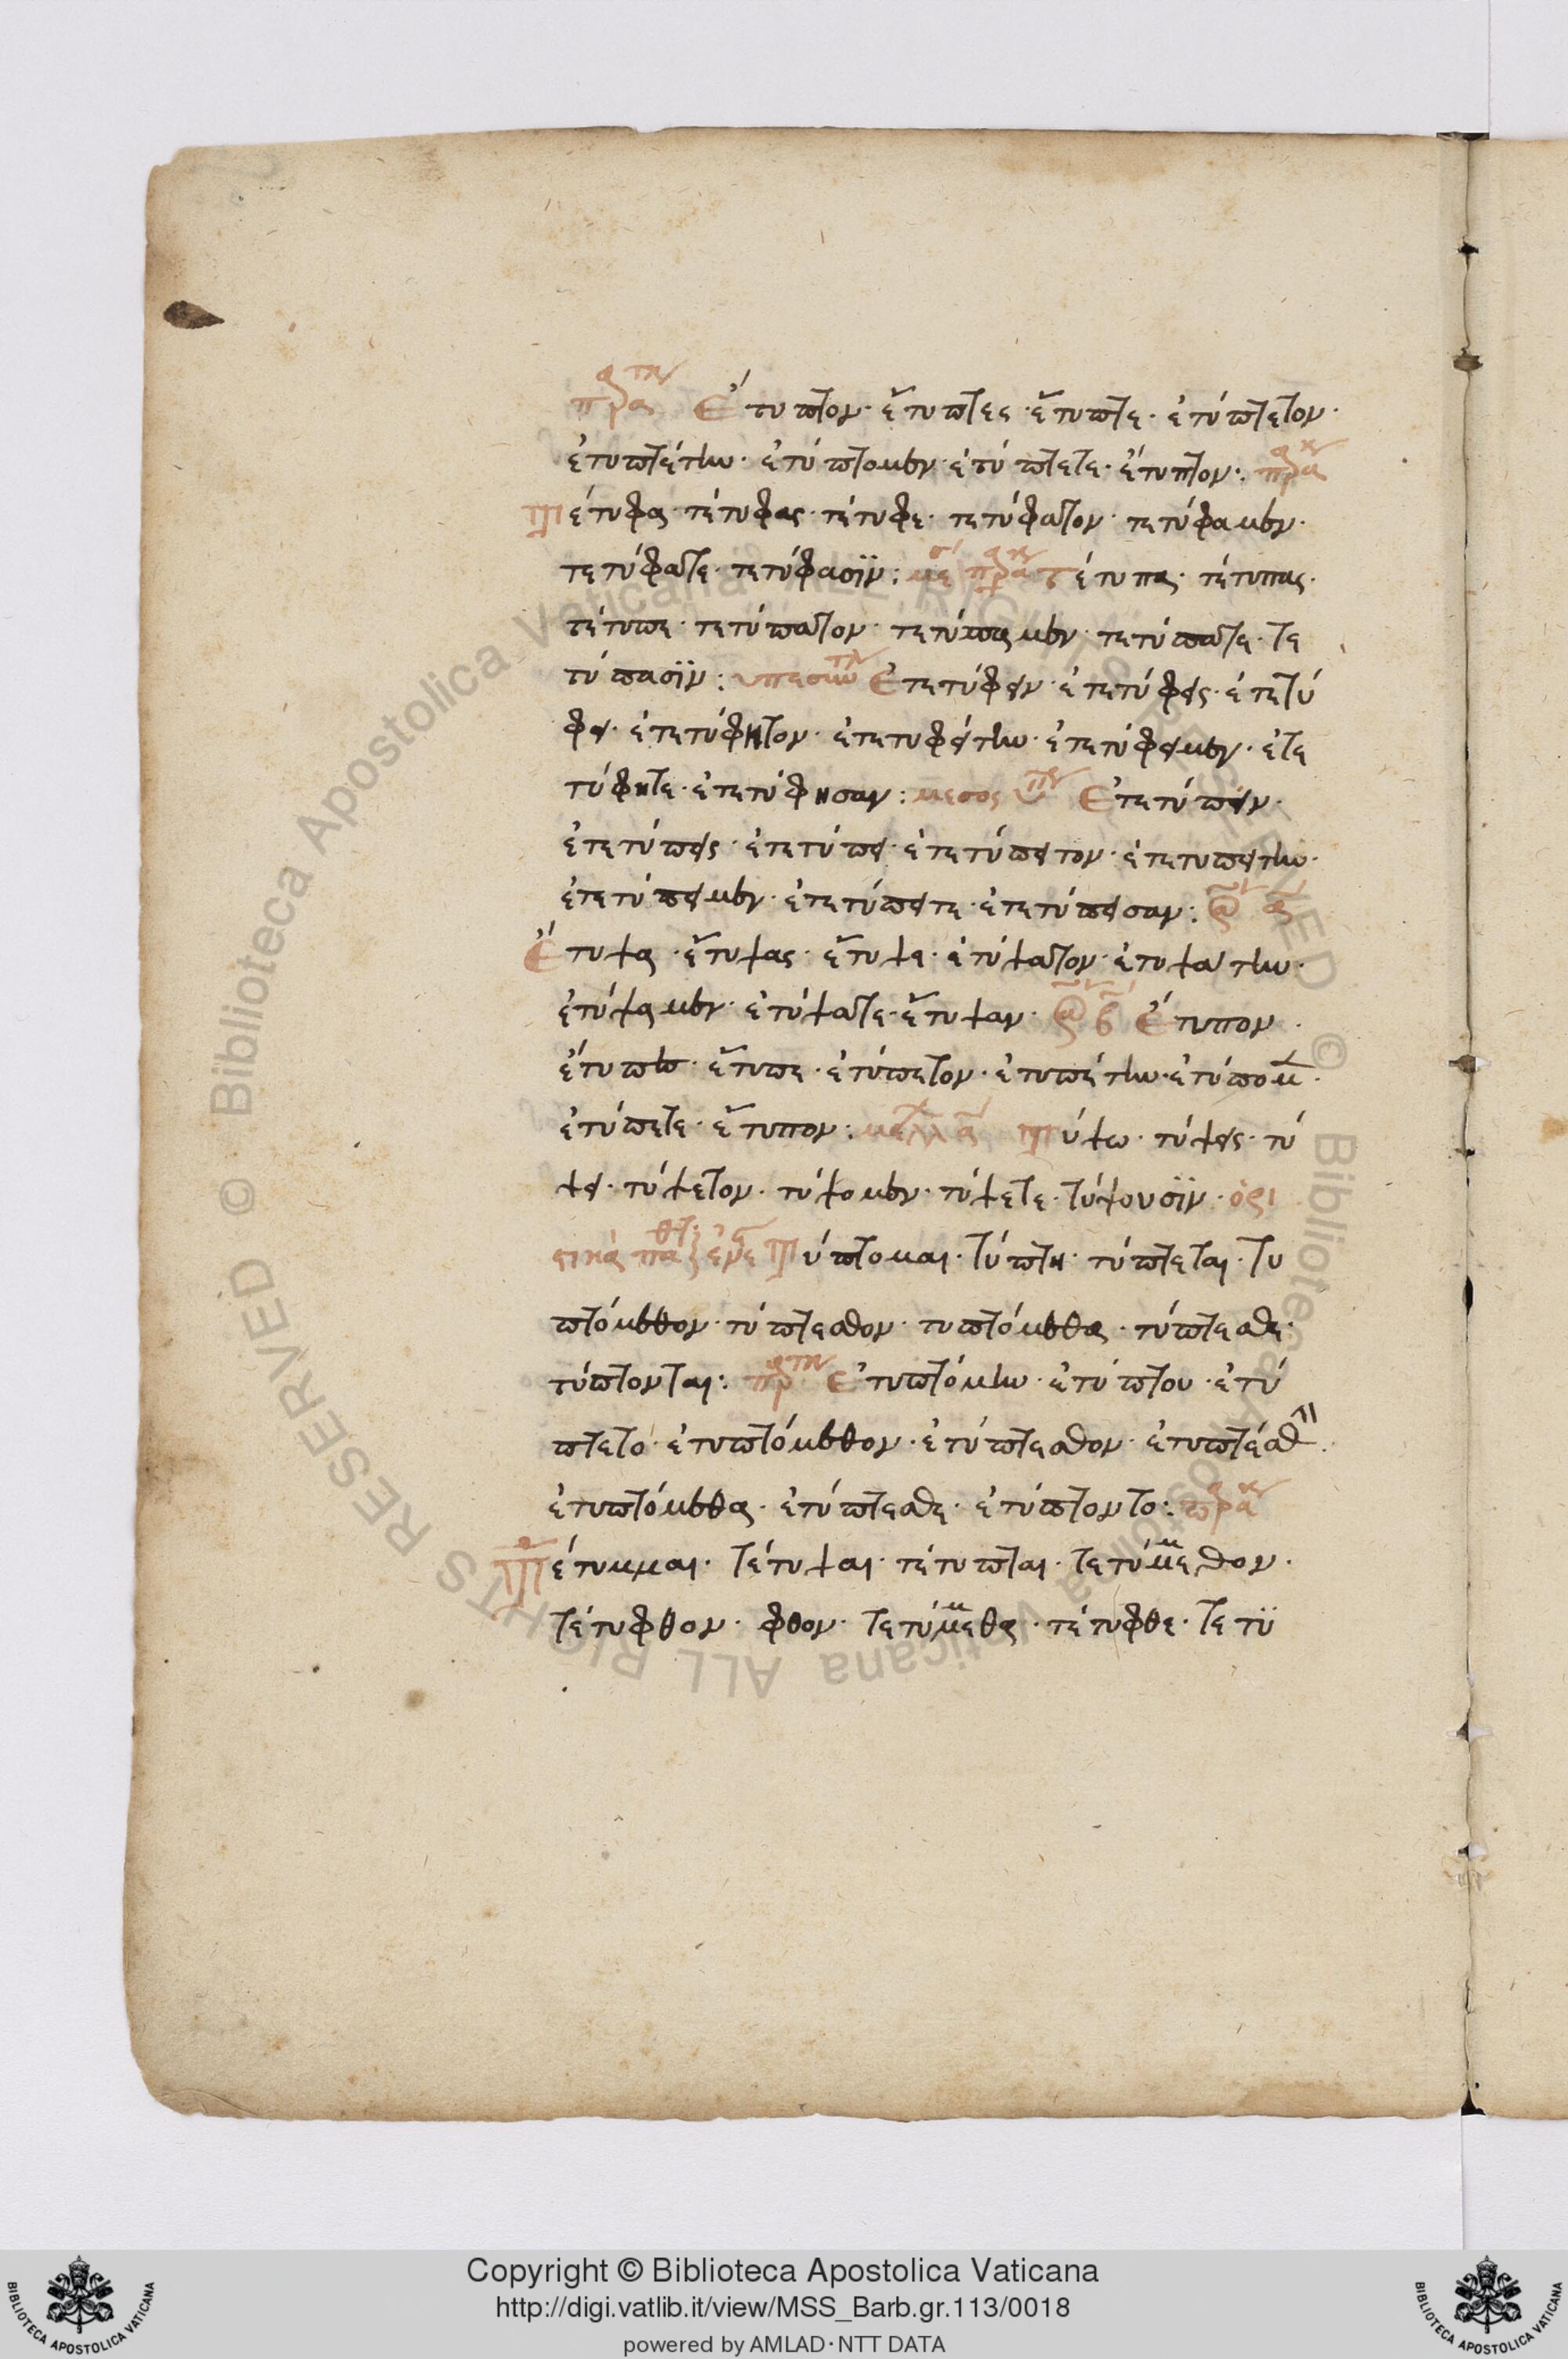 πρα τκ Ἔτυπτον· ἔτυπτες· ἔτυπτε· ἐτύπτετον·
ἐτυπτέτην· ἐτύπτομεν· ἐτύπτετε· ἔτυπτον: πρα κ
Τέτυφα· τέτυφας· τέτυφε· τετύφατον· τετύφαμεν·
τετύφατε· τετύφασϊν: μέσ πρακ Τέτυπα· τέτυπας·
τέτυπε· τετύπατον· τετύπαμεν· τετύπατε· τε
τύπασϊν: υπερσυν Ἐτετύφειν· ἐτετύφεις· ἐτετύ
φει· ἐτετύφητον· ἐτετυφείτην· ἐτετύφειμεν· ἐτε
τύφητε· ἐτετύφησαν: μεσος υπ Ἐτετύπειν·
ἐτετύπεις· ἐτετύπει· ἐτετύπειτον· ἐτετυπείτην·
ἐτετύπειμεν· ἐτετύπειτε· ἐτετύπεισαν: αορ α
Ἔτυψα· ἔτυψας· ἔτυψε· ἐτύψατον· ἐτυψάτην·
ἐτύψαμεν· ἐτύψατε· ἔτυψαν· αορ β Ἔτυπον·
ἔτυπες· ἔτυπε· ἐτύπετον· ἐτυπέτην· ἐτύπομ·
ἐτύπετε· ἔτυπον: μελλ α Τύψω· τύψεις· τύ
ψει· τύψετον· τύψομεν· τύψετε· τύψουσϊν· ὁρι
στικὰ παθτ ἐνε Τύπτομαι· τύπτη· τύπτεται· τυ
πτόμεθον· τύπτεσθον· τυπτόμεθα· τύπτεσθε·
τύπτονται: πρατκ Ἐτυπτόμην· ἐτύπτου· ἐτύ
πτετο· ἐτυπτόμεθον· ἐτύπτεσθον· ἐτυπτέσθ·
ἐτυπτόμεθα· ἐτύπτεσθε· ἐτύπτοντο: πρακ
Τέτυμμαι· τέτυψαι· τέτυπται· τετύμμεθον·
τέτυφθον· φθον· τετύμμεθα· τέτυφθε· τετϋ
Copyright © Biblioteca Apostolica Vaticana
http://digi.vatlib.it/view/MSS_Barb.gr.113/0018
powered by AMLAD·NTT DATA